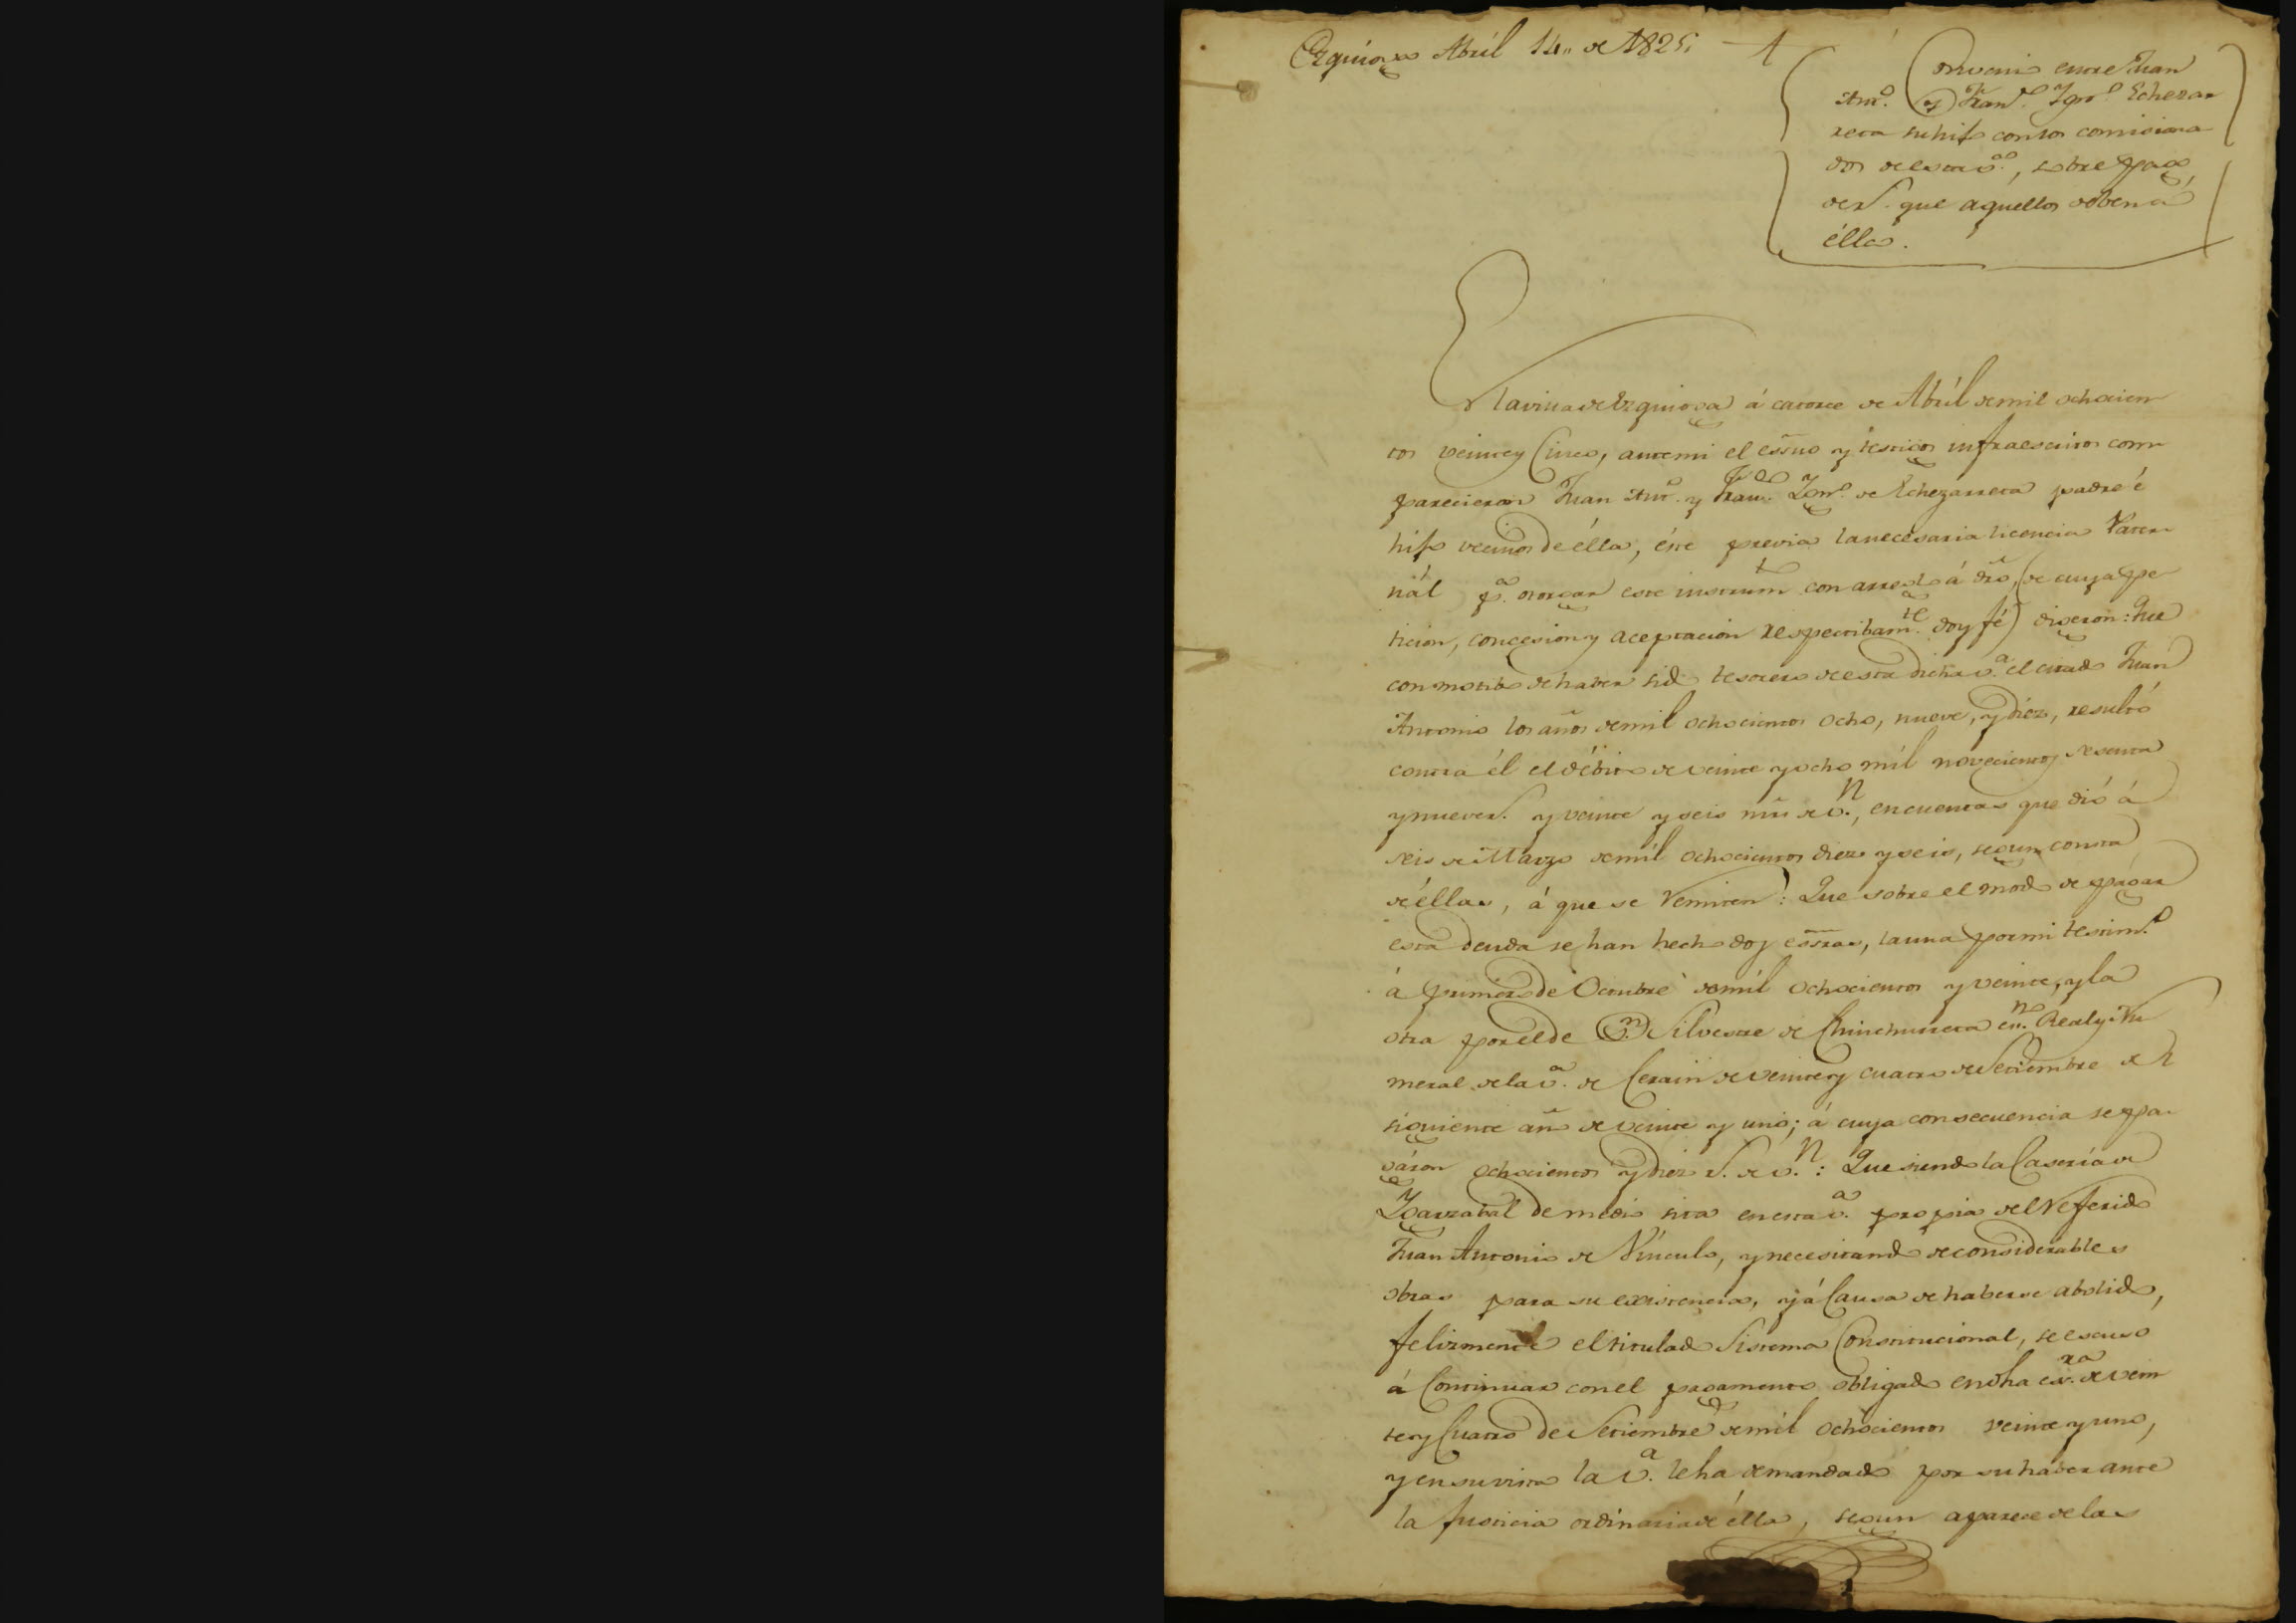 Ezquioga Abril 14,, de 1825.
Convenio entre Juan
Antº. y Franco. Ignº. Echezar
reta su hijo con los comisiona
dos de esta vª., sobre pago
de rs. que aquellos deben á
élla.
En la villa de Ezquioga á catorce de Abril de mil ochocien
tos veinte y Cinco, ante mi el essno y testigos infraescritos com
parecieron Juan Antº. y Franco. Ignº. de Echezarreta padre é
hijo vecinos de élla, éste previa la necesaria licencia Pater
nál pª. otorgar este instrumto con arreglo á dro, (de cuya pe
ticion, concesion y aceptacion respectibamte. doy fé) digeron: Que
con motibo de haber sido tesorero de esta dicha vª. el citado Juan
Antonio los años de mil ochocientos ocho, nueve, y diez, resultó
contra él el débito de veinte y ocho mil novecientos sesenta
y nueve rs. y veinte y seis mrs de vn., en cuentas que dió á
seis de Marzo de mil ochocientos diez y seis, segun consta
de éllas, á que se remiten: Que sobre el modo de pagar
esta deuda se han hecho dos essras, la una por mi testimº.
á primero de Octubre de mil ochocientos y veinte, y la
otra por el de Dn. Silvestre de Chinchurreta esno. Real y Nu
meral de la vª. de Cerain de veinte y cuatro de Setiembre del
siguiente año de veinte y uno; á cuya consecuencia se pa
gáron ochocientos y diez rs. de vn.: Que siendo la Casería de
Igarzabál de medio sita en esta vª. propia del referido
Juan Antonio de Vínculo, y necesitando de considerables
obras para su existencia, y á Causa de haberse abolido,
felizmente el titulado Sistema Constitucional, se escusó
á Continuar con el pagamento obligado en dha esra. de vein
te y Cuatro de Setiembre de mil ochocientos veinte y uno,
y en su vista la vª. le ha demandado por su haber ante
la Justicia ordinaria de élla, segun aparece de las